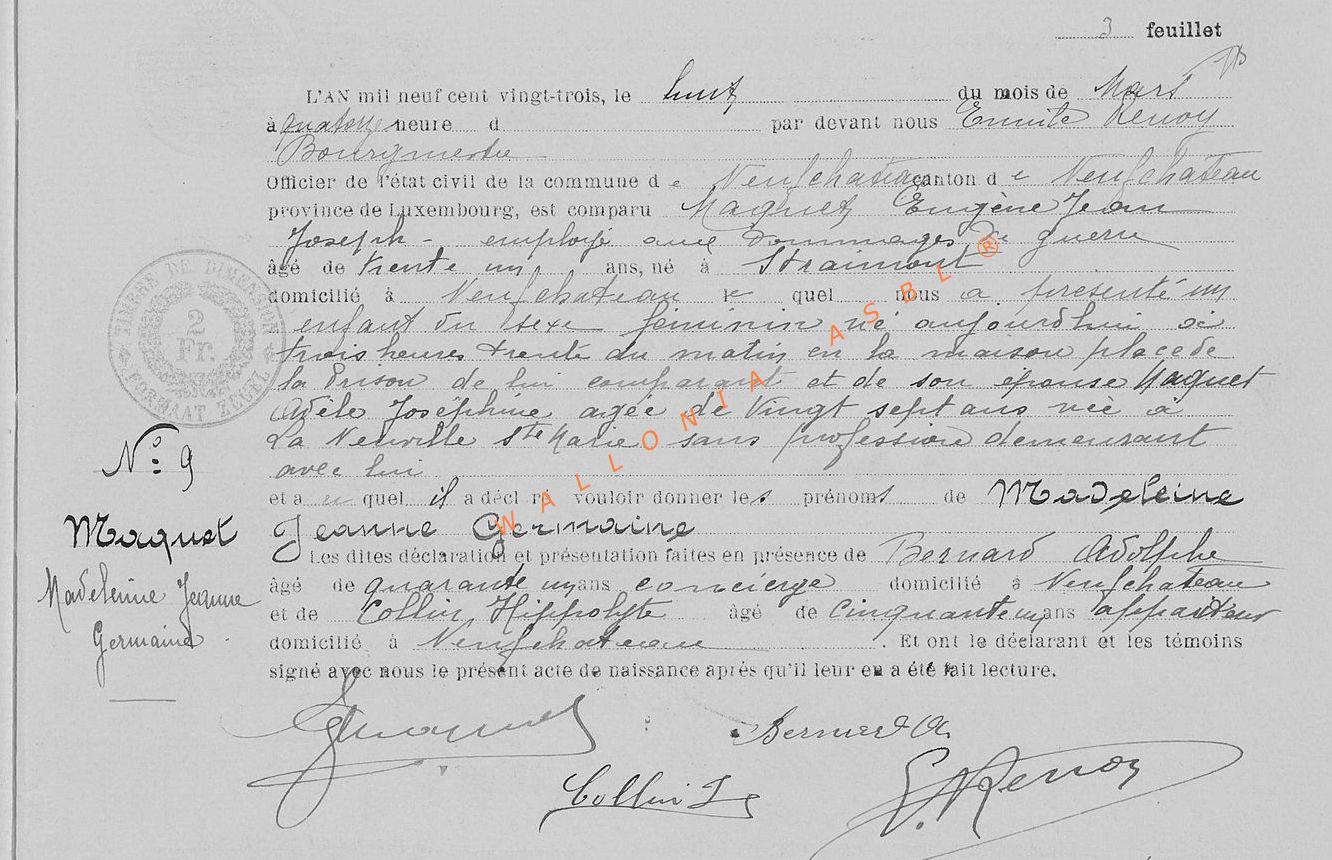 3 feuillet
L'AN mil neuf cent vingt-trois, le huit du mois de Mars
à quatorze heure d par devant nous Emile Renoy
Bourgmestre
Officier de l'état civil de la commune de Neufchateau canton de Neufchateau
province de Luxembourg, est comparu Maquet Eugène Jean
Joseph, employé aux Dommages de guerre
âgé de trente un ans, né à Straimont
domicilié à Neufchateau le quel nous a présenté un
enfant du sexe féminin né aujourdhui à
trois heures trente du matin en la maison place de
la Prison de lui comparant et de son épouse Maquet
Adèle Joséphine agée de Vingt sept ans née à
La Neuville Ste Marie sans profession demeurant
avec lui
et auquel il a décl ré vouloir donner les prénoms de Madeleine
Jeanne Germaine
Les dites déclaration et présentation faites en présence de Bernard Adolphe
âgé de quarante un ans concierge domicilié à Neufchateau
et de Collin Hippolyte âgé de cinquante un ans appariteur
domicilié à Neufchateau. Et ont le déclarant et les témoins
signé avec nous le présent acte de naissance après qu'il leur en a été fait lecture.
N° 9
Maquet
Madeleine Jeanne
Germaine
TIMBRE DE DIMENSION
2
Fr.
FORMAAT ZEGEL
Maquet
Bernard A
Collin
E. Renoy
WALLONIA ASBL ®